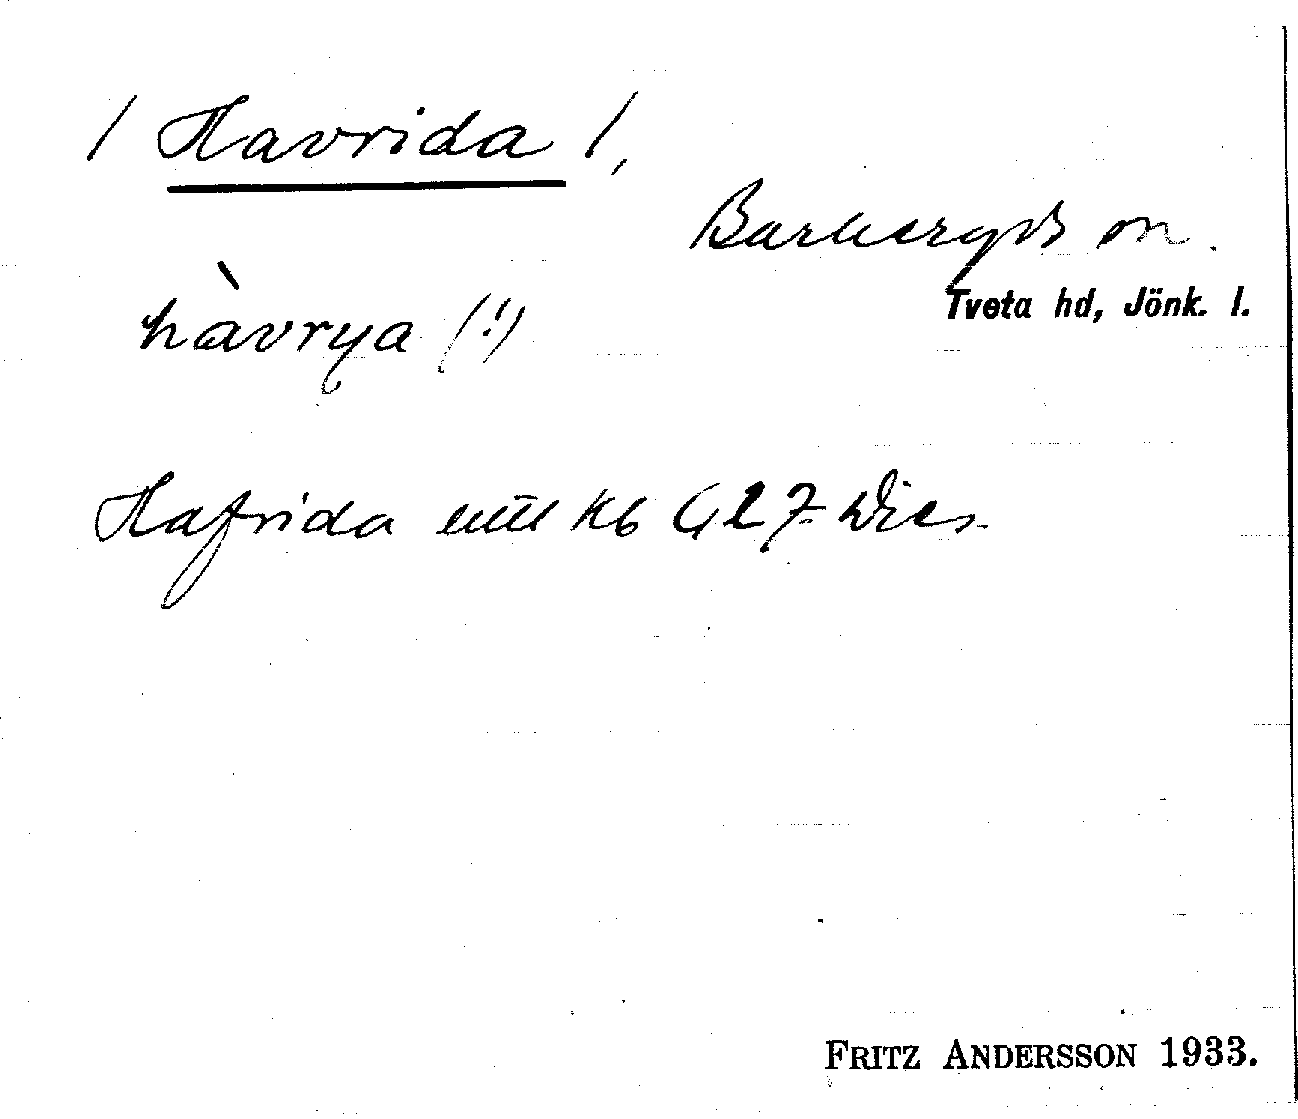 / Havrida /,
Barkeryds sn.
Tveta hd, Jönk. l.
hàvrya (!)
Hafrida Kb
FRITZ ANDERSSON 1933.